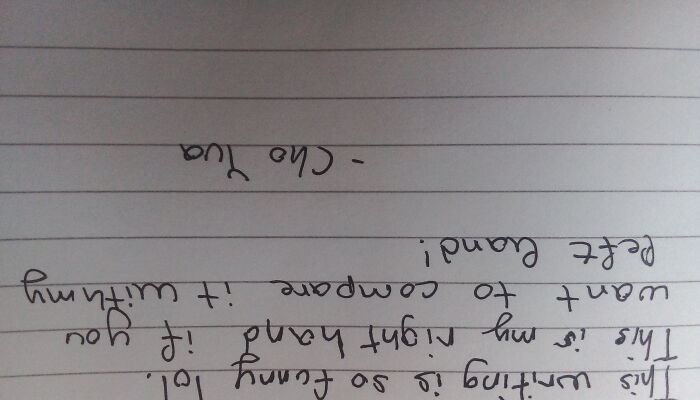 This writing is so funny lol.
This is my right hand if you
want to compare it with my
left hand!
- Cho Yua